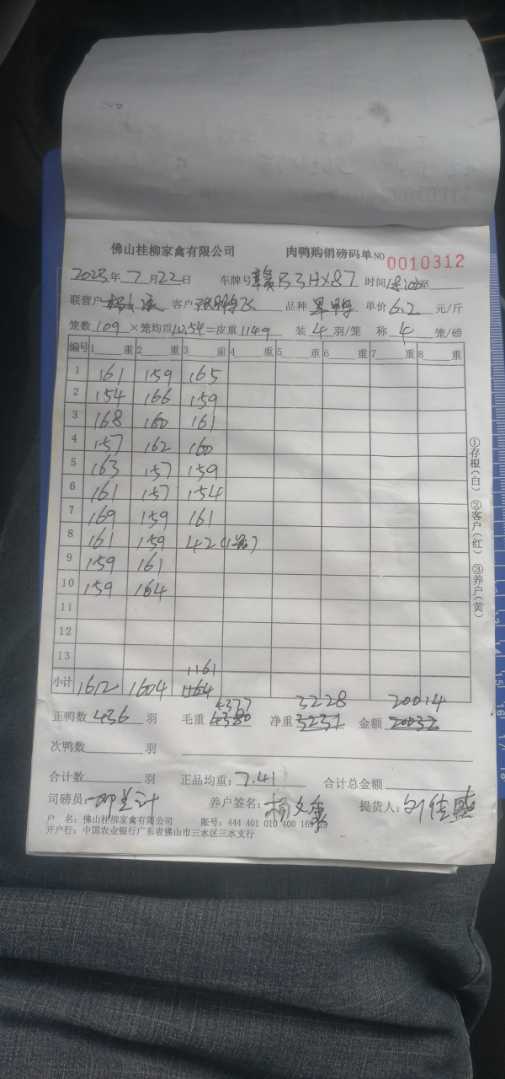 佛山桂柳家禽有限公司 肉鸭购销磅码单 NO 0010312
2023年 7月22日 车牌号 赣B3HX87 时间
联营户 客户 品种 单价 6.2 元/斤
笼数 109 ×笼均重 10.54 =皮重 1149 装 4 羽/笼 称 4 笼/磅
编号 1 重 2 重 3 重 4 重 5 重 6 重 7 重 8 重
1 161 159 165
2 154 166 159
3 168 160 161
4 157 162 160
5 163 157 159
6 161 157 154
7 169 159 161
8 161 159 42(1笼)
9 159 161
10 159 164
11
12
13
1161
小计 1612 1604 1164
4377 3228 20014
正鸭数 436 羽 毛重 4380 净重 3231 金额 20032
次鸭数 羽
合计数 羽 正品均重: 7.41 合计总金额
司磅员: 养户签名: 杨文康 提货人: 刘佳
户 名: 佛山桂柳家禽有限公司 账号: 444 401 010 400
开户行: 中国农业银行广东省佛山市三水区三水支行
①存根(白) ②客户(红) ③养户(黄)